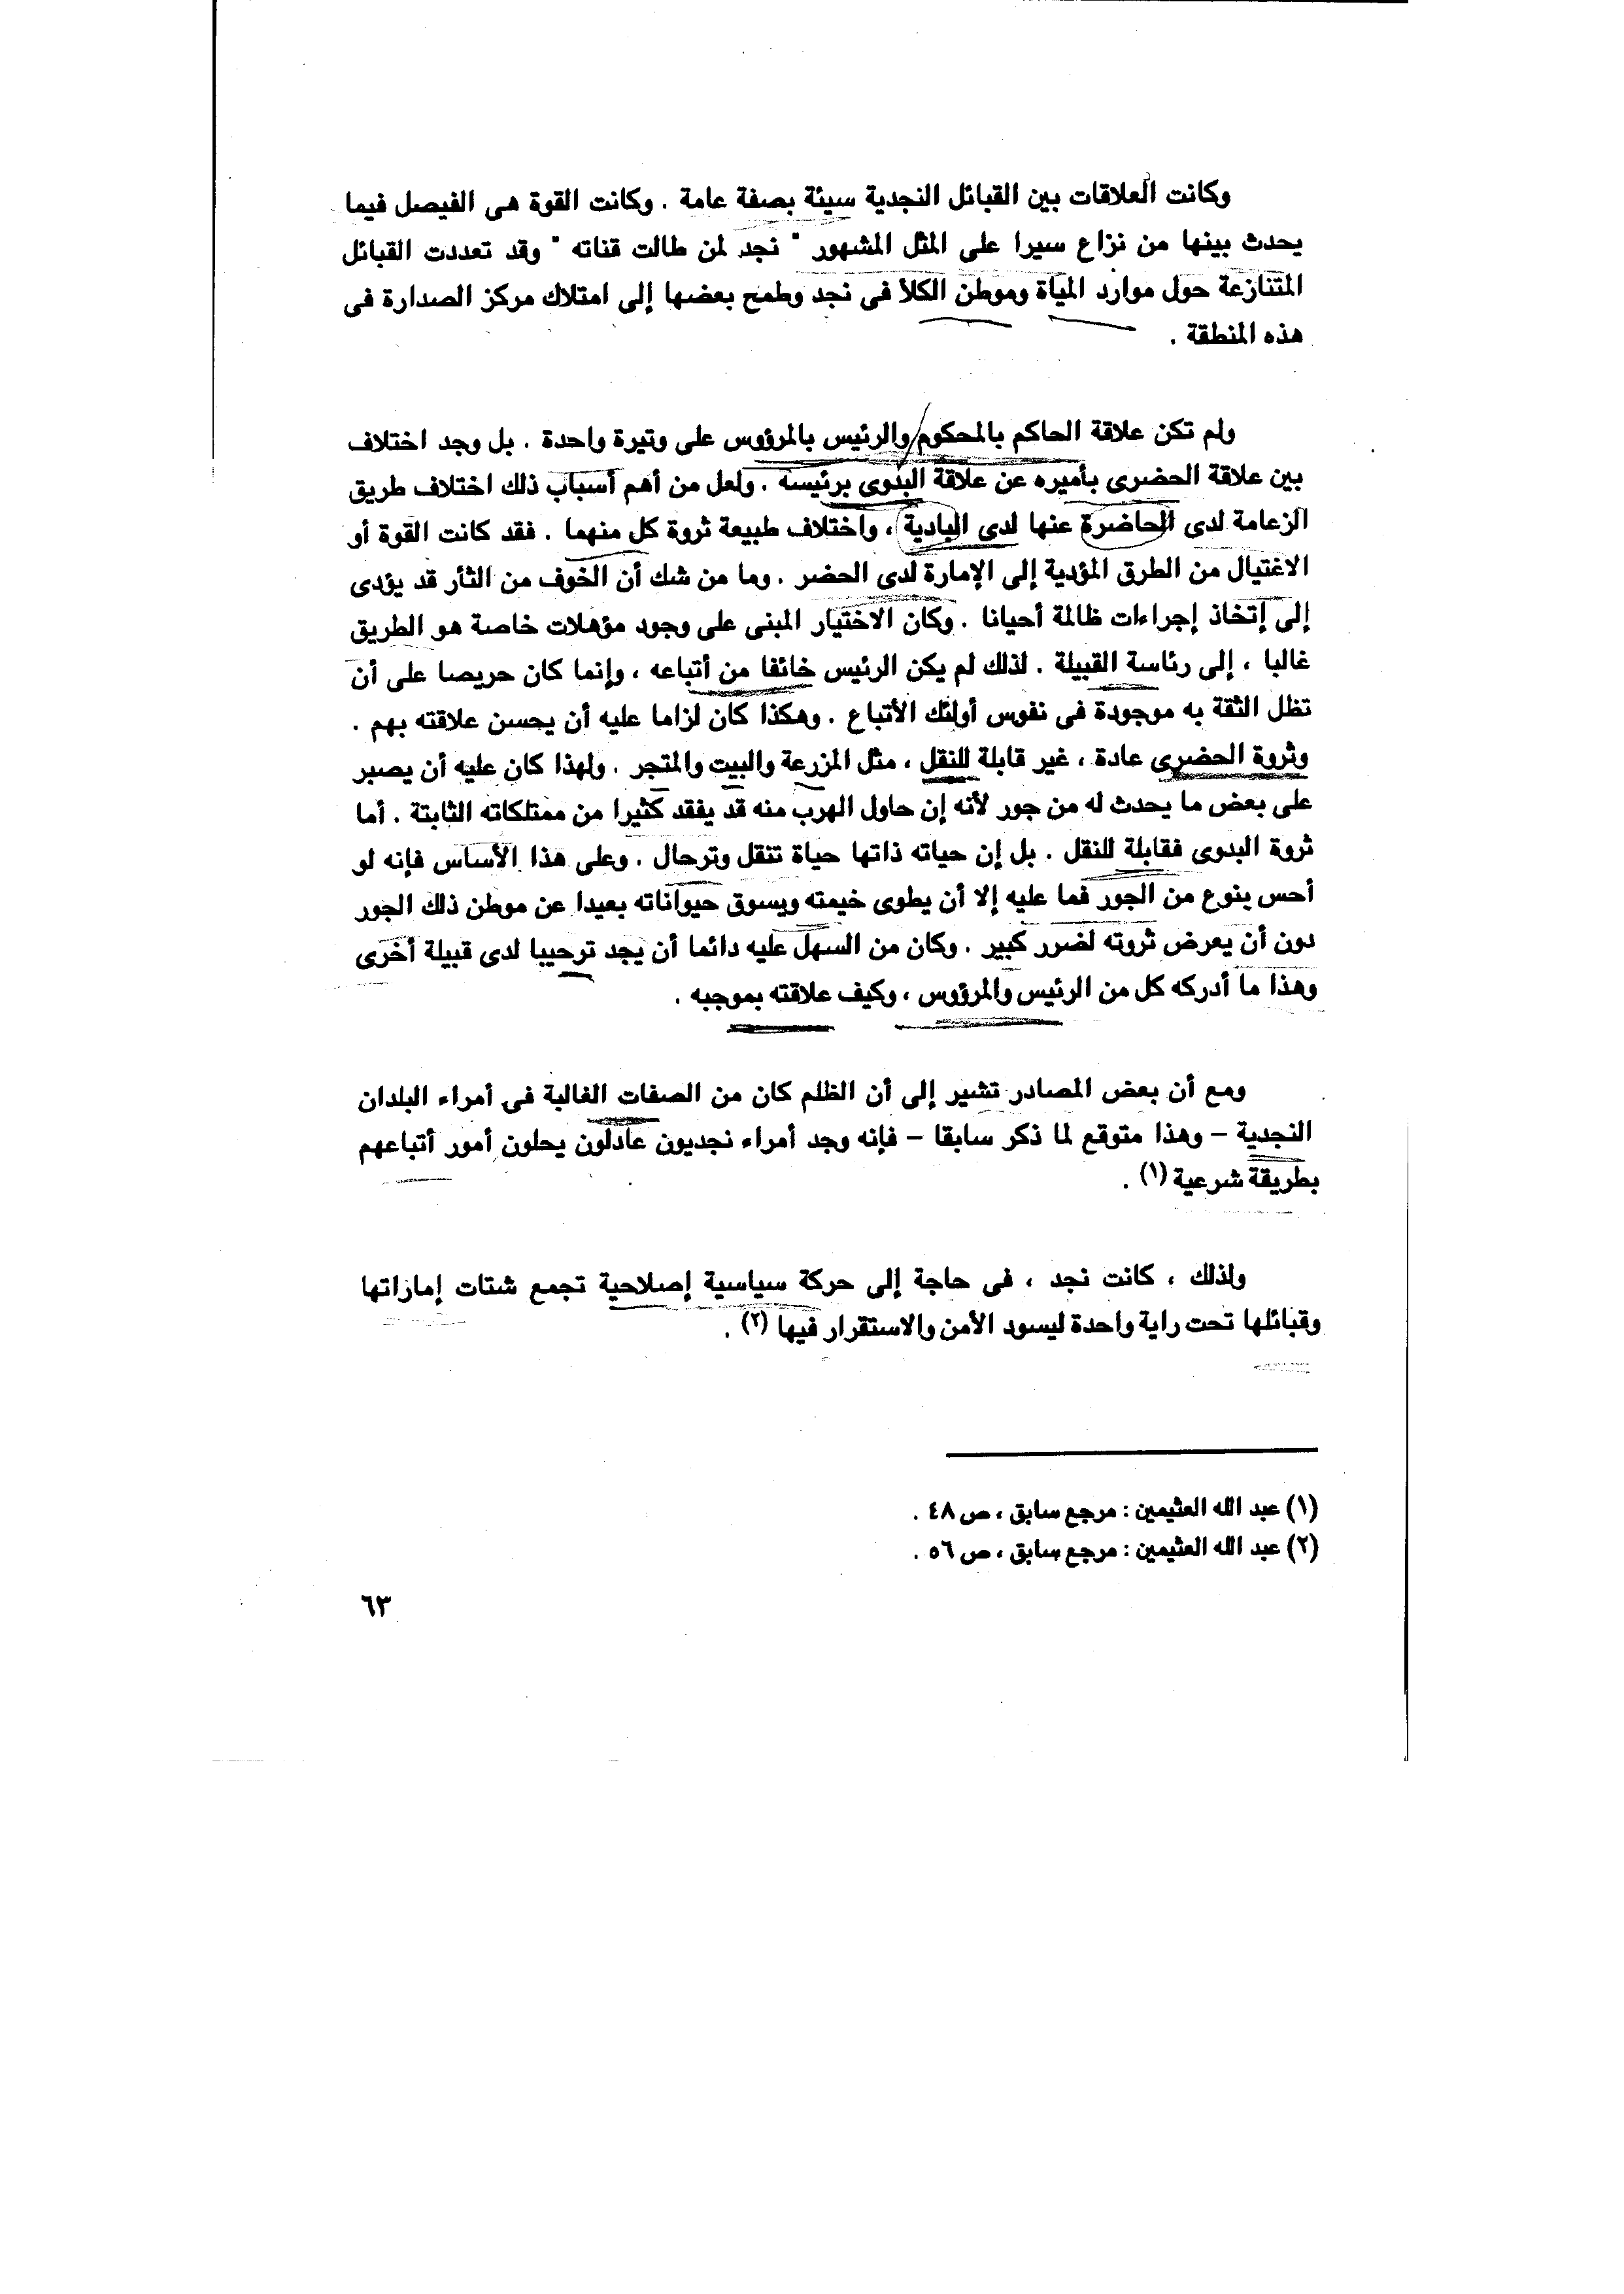 وكانت العلاقات بين القبائل النجدية سيئة بصفة عامة . وكانت القوة هى الفيصل فيما
يحدث بينها من نزاع سيرا على المثل المشهور " نجد لمن طالت قناته " وقد تعددت القبائل
المتنازعة حول موارد المياة وموطن الكلأ فى نجد وطمح بعضها إلى امتلاك مركز الصدارة فى
هذه المنطقة .
ولم تكن علاقة الحاكم بالمحكوم والرئيس بالمرؤوس على وتيرة واحدة . بل وجد اختلاف
بين علاقة الحضرى بأميره عن علاقة البدوى برئيسه . ولعل من أهم أسباب ذلك اختلاف طريق
الزعامة لدى الحاضرة عنها لدى البادية ، واختلاف طبيعة ثروة كل منهما . فقد كانت القوة أو
الاغتيال من الطرق المؤدية إلى الإمارة لدى الحضر . وما من شك أن الخوف من الثأر قد يؤدى
إلى إتخاذ إجراءات ظالمة أحيانا . وكان الاختيار المبنى على وجود مؤهلات خاصة هو الطريق
غالبا ، إلى رئاسة القبيلة . لذلك لم يكن الرئيس خائفا من أتباعه ، وإنما كان حريصا على أن
تظل الثقة به موجودة فى نفوس أولئك الأتباع . وهكذا كان لزاما عليه أن يحسن علاقته بهم .
وثروة الحضرى عادة ، غير قابلة للنقل ، مثل المزرعة والبيت والمتجر . ولهذا كان عليه أن يصبر
على بعض ما يحدث له من جور لأنه إن حاول الهرب منه قد يفقد كثيرا من ممتلكاته الثابتة . أما
ثروة البدوى فقابلة للنقل . بل إن حياته ذاتها حياة تنقل وترحال . وعلى هذا الأساس فإنه لو
أحس بنوع من الجور فما عليه إلا أن يطوى خيمته ويسوق حيواناته بعيدا عن موطن ذلك الجور
دون أن يعرض ثروته لضرر كبير . وكان من السهل عليه دائما أن يجد ترحيبا لدى قبيلة أخرى
وهذا ما أدركه كل من الرئيس والمرؤوس ، وكيف علاقته بموجبه .
ومع أن بعض المصادر تشير إلى أن الظلم كان من الصفات الغالبة فى أمراء البلدان
النجدية – وهذا متوقع لما ذكر سابقا – فإنه وجد أمراء نجديون عادلون يحلون أمور أتباعهم
بطريقة شرعية (١) .
ولذلك ، كانت نجد ، فى حاجة إلى حركة سياسية إصلاحية تجمع شتات إماراتها
وقبائلها تحت راية واحدة ليسود الأمن والاستقرار فيها (٢) .
(١) عبد الله العثيمين : مرجع سابق ، ص ٤٨ .
(٢) عبد الله العثيمين : مرجع سابق ، ص ٥٦ .
٦٣